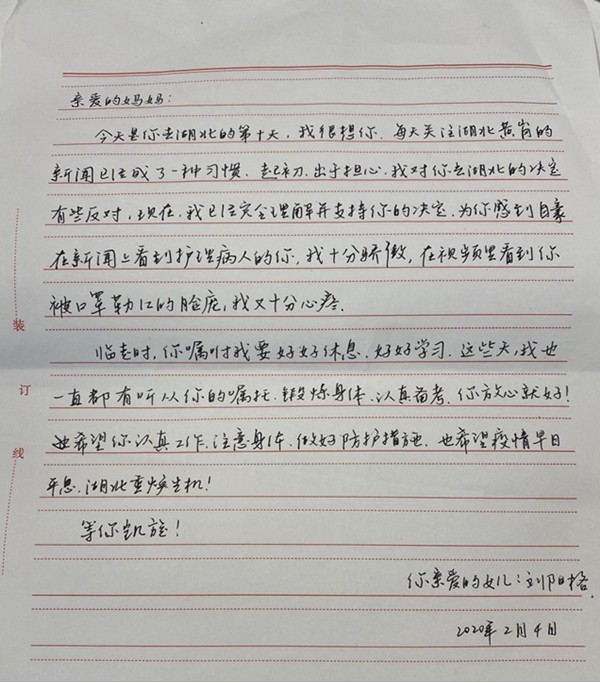 亲爱的妈妈：
今天是你去湖北的第十天，我很想你，每天关注湖北黄岗的
新闻已经成了一种习惯，起初，出于担心，我对你去湖北的决定
有些反对，现在，我已经完全理解并支持你的决定，为你感到自豪
在新闻上看到护理病人的你，我十分骄傲，在视频里看到你
被口罩勒红的脸庞，我又十分心疼。
临走时，你嘱咐我要好好休息，好好学习，这些天，我也
一直都有听从你的嘱托，锻炼身体，认真备考，你放心就好！
也希望你认真工作，注意身体，做好防护措施，也希望疫情早日
平息，湖北重焕生机！
等你凯旋！
你亲爱的女儿：刘阳格
2020年2月4日
装
订
线